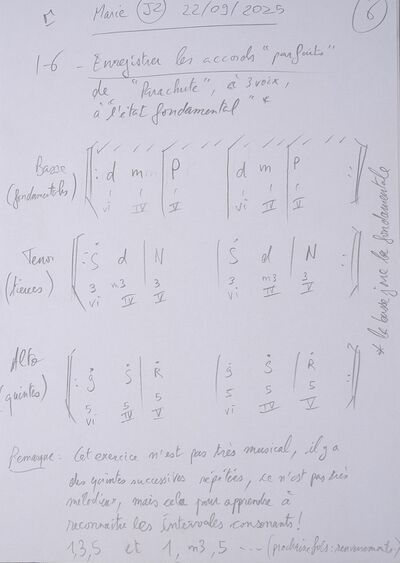 Marie J2 22/09/2025
6
1-6 - Enregistrer les accords "parfaits"
de "Parachute", à 3 voix,
à "l'état fondamental" *
Basse ‖: d m | P d m | P :‖
(fondamentales) 1 1 1 1 1 1
vi IV V vi IV V
Tenor ‖: S d | N S d | N :‖
(tierces) 3 m3 3 3 m3 3
vi IV V vi IV V
Alto ‖: g S | R g S | R :‖
(quintes) 5 5 5 5 5 5
vi IV V vi IV V
* la basse joue la fondamentale
Remarque : Cet exercice n'est pas très musical, il y a
des quintes successives répétées, ce n'est pas très
mélodieux, mais cela pour apprendre à
reconnaître les intervales consonants!
1,3,5 et 1, m3, 5 --- (prochaine fois: renversements)